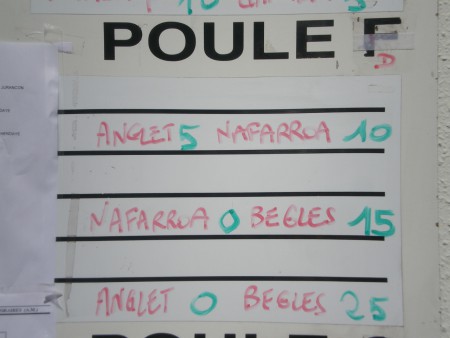 POULE F
D
ANGLET 5 NAFARROA 10
NAFARROA 0 BEGLES 15
ANGLET 0 BEGLES 25